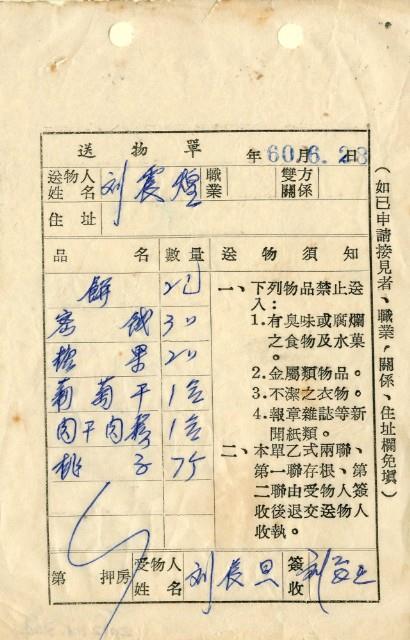 送物單
年 60.6.28 月 日
送物人姓名 刘震煌 職業 雙方關係
住址
品名 數量 送物須知
餅 2包
蜜餞 3口
糖果 2口
葡萄干 1盒
肉干肉鬆 1盒
桃子 7个
一、下列物品禁止送入:
1.有臭味或腐爛之食物及水菓之。
2.金屬類物品。
3.不潔之衣物。
4.報章雜誌等新聞紙類。
二、本單乙式兩聯、第一聯存根、第二聯由受物人簽收後退交送物人收執。
第 押房 受物人姓名 刘辰旦 簽收 刘辰旦
(如已申請接見者、職業,關係、住址欄免填)